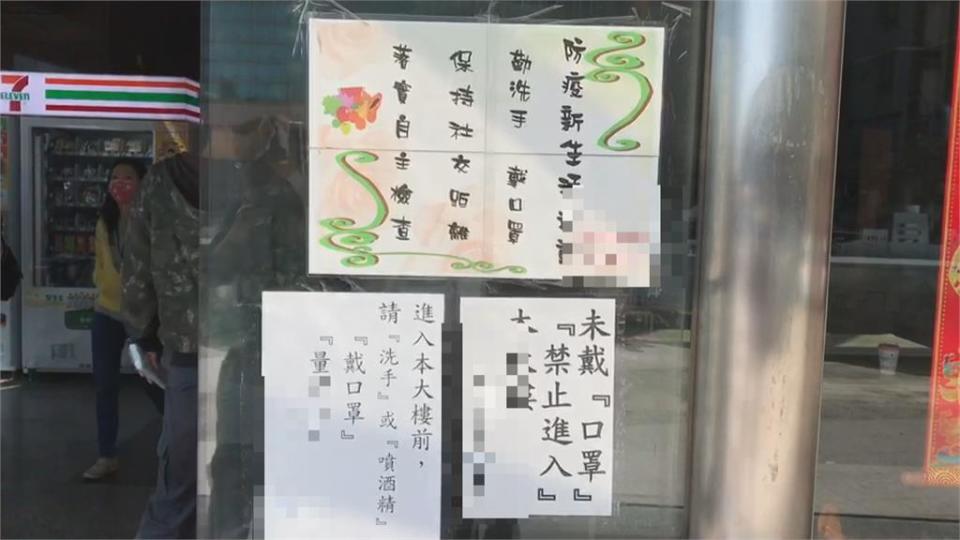 防疫新生活
勤洗手 戴口罩
保持社交距離
落實自主檢查
進入本大樓前，
請『洗手』或『噴酒精』
『戴口罩』
『量
未戴『口罩』
『禁止進入』
7
ELEVEN